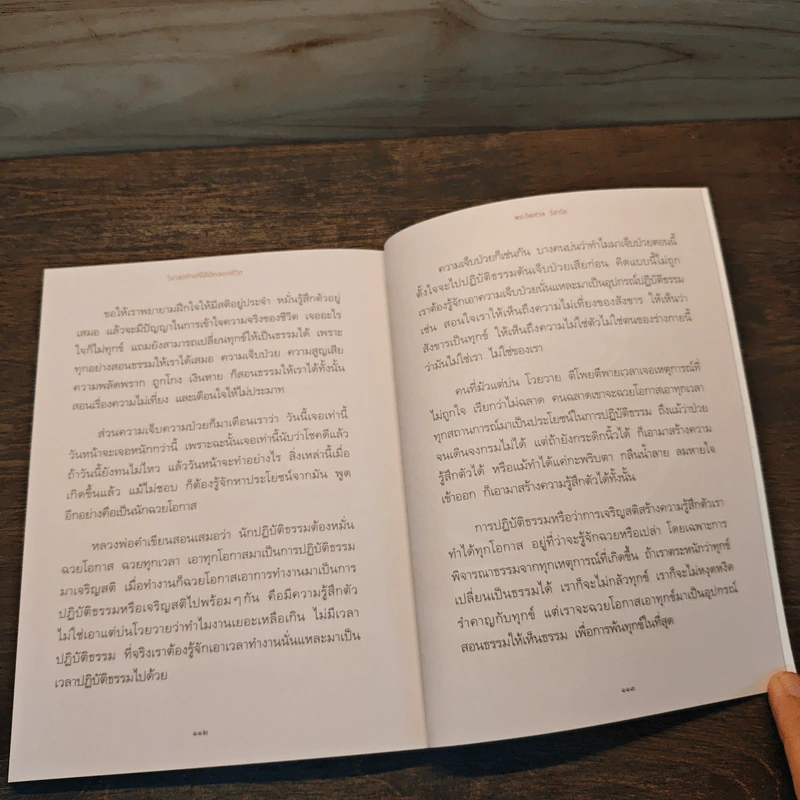 ขอให้เราพยายามฝึกใจให้มีสติอยู่ประจำ หมั่นรู้สึกตัวอยู่
เสมอ แล้วจะมีปัญญาในการเข้าใจความจริงของชีวิต เจออะไร
ใจก็ไม่ทุกข์ แถมยังสามารถเปลี่ยนทุกข์ให้เป็นธรรมได้ เพราะ
ทุกอย่างสอนธรรมให้เราได้เสมอ ความเจ็บป่วย ความสูญเสีย
ความพลัดพราก ถูกโกง เงินหาย ก็สอนธรรมให้เราได้ทั้งนั้น
สอนเรื่องความไม่เที่ยง และเตือนใจให้ไม่ประมาท
ส่วนความเจ็บความป่วยก็มาเตือนเราว่า วันนี้เจอเท่านี้
วันหน้าจะเจอหนักกว่านี้ เพราะฉะนั้นเจอเท่านี้นับว่าโชคดีแล้ว
ถ้าวันนี้ยังทนไม่ไหว แล้ววันหน้าจะทำอย่างไร สิ่งเหล่านี้เมื่อ
เกิดขึ้นแล้ว แม้ไม่ชอบ ก็ต้องรู้จักหาประโยชน์จากมัน พูด
อีกอย่างคือเป็นนักฉวยโอกาส
หลวงพ่อคำเขียนสอนเสมอว่า นักปฏิบัติธรรมต้องหมั่น
ฉวยโอกาส ฉวยทุกเวลา เอาทุกโอกาสมาเป็นการปฏิบัติธรรม
มาเจริญสติ เมื่อทำงานก็ฉวยโอกาสเอาการทำงานมาเป็นการ
ปฏิบัติธรรมหรือเจริญสติไปพร้อมๆกัน คือมีความรู้สึกตัว
ไม่ใช่เอาแต่บ่นโวยวายว่าทำไมงานเยอะเหลือเกิน ไม่มีเวลา
ปฏิบัติธรรม ที่จริงเราต้องรู้จักเอาเวลาทำงานนั่นแหละมาเป็น
เวลาปฏิบัติธรรมไปด้วย
๑๑๒
พระไพศาล วิสาโล
ความเจ็บป่วยก็เช่นกัน บางคนบ่นว่าทำไมมาเจ็บป่วยตอนนี้
ตั้งใจจะไปปฏิบัติธรรมดันเจ็บป่วยเสียก่อน คิดแบบนี้ไม่ถูก
เราต้องรู้จักเอาความเจ็บป่วยนั่นแหละมาเป็นอุปกรณ์ปฏิบัติธรรม
เช่น สอนใจเราให้เห็นถึงความไม่เที่ยงของสังขาร ให้เห็นว่า
สังขารเป็นทุกข์ ให้เห็นถึงความไม่ใช่ตัวไม่ใช่ตนของร่างกายนี้
ว่ามันไม่ใช่เรา ไม่ใช่ของเรา
คนที่มัวแต่บ่น โวยวาย ตีโพยตีพายเวลาเจอเหตุการณ์ที่
ไม่ถูกใจ เรียกว่าไม่ฉลาด คนฉลาดเขาจะฉวยโอกาสเอาทุกเวลา
ทุกสถานการณ์มาเป็นประโยชน์ในการปฏิบัติธรรม ถึงแม้ว่าป่วย
จนเดินจงกรมไม่ได้ แต่ถ้ายังกระดิกนิ้วได้ ก็เอามาสร้างความ
รู้สึกตัวได้ หรือแม้ทำได้แค่กะพริบตา กลืนน้ำลาย ลมหายใจ
เข้าออก ก็เอามาสร้างความรู้สึกตัวได้ทั้งนั้น
การปฏิบัติธรรมหรือว่าการเจริญสติสร้างความรู้สึกตัวเรา
ทำได้ทุกโอกาส อยู่ที่ว่าจะรู้จักฉวยหรือเปล่า โดยเฉพาะการ
พิจารณาธรรมจากทุกเหตุการณ์ที่เกิดขึ้น ถ้าเราตระหนักว่าทุกข์
เปลี่ยนเป็นธรรมได้ เราก็จะไม่กลัวทุกข์ เราก็จะไม่หงุดหงิด
รำคาญกับทุกข์ แต่เราจะฉวยโอกาสเอาทุกข์มาเป็นอุปกรณ์
สอนธรรมให้เห็นธรรม เพื่อการพ้นทุกข์ในที่สุด
๑๑๓